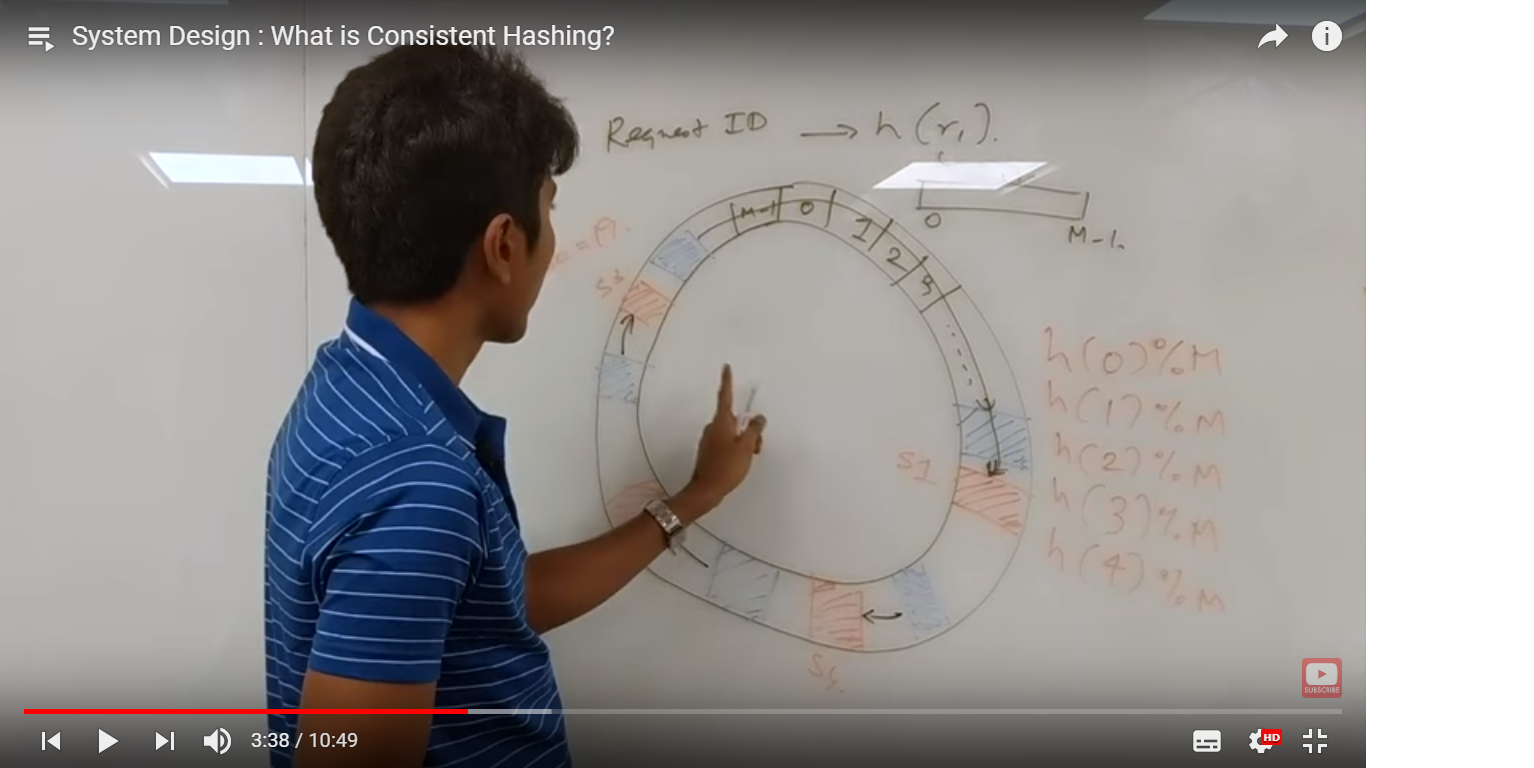 System Design : What is Consistent Hashing?
Request ID → h(r₁).
0
M-1.
M-1 0 1 2 3
= 19.
S3
S1
S4.
h(0)%M
h(1)%M
h(2)%M
h(3)%M
h(4)%M
SUBSCRIBE
3:38 / 10:49
HD